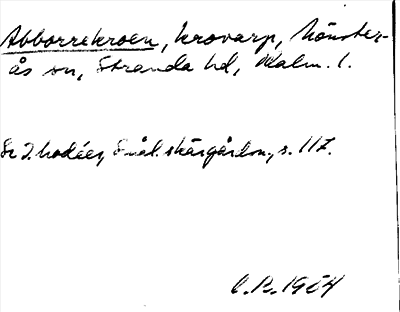 Abborrekroen, krovarp, Mönster-
ås sn, Stranda hd, Kalm. l.
Se I. Modéer, Smål. skärgårdsn., s. 117.
C.R. 1964